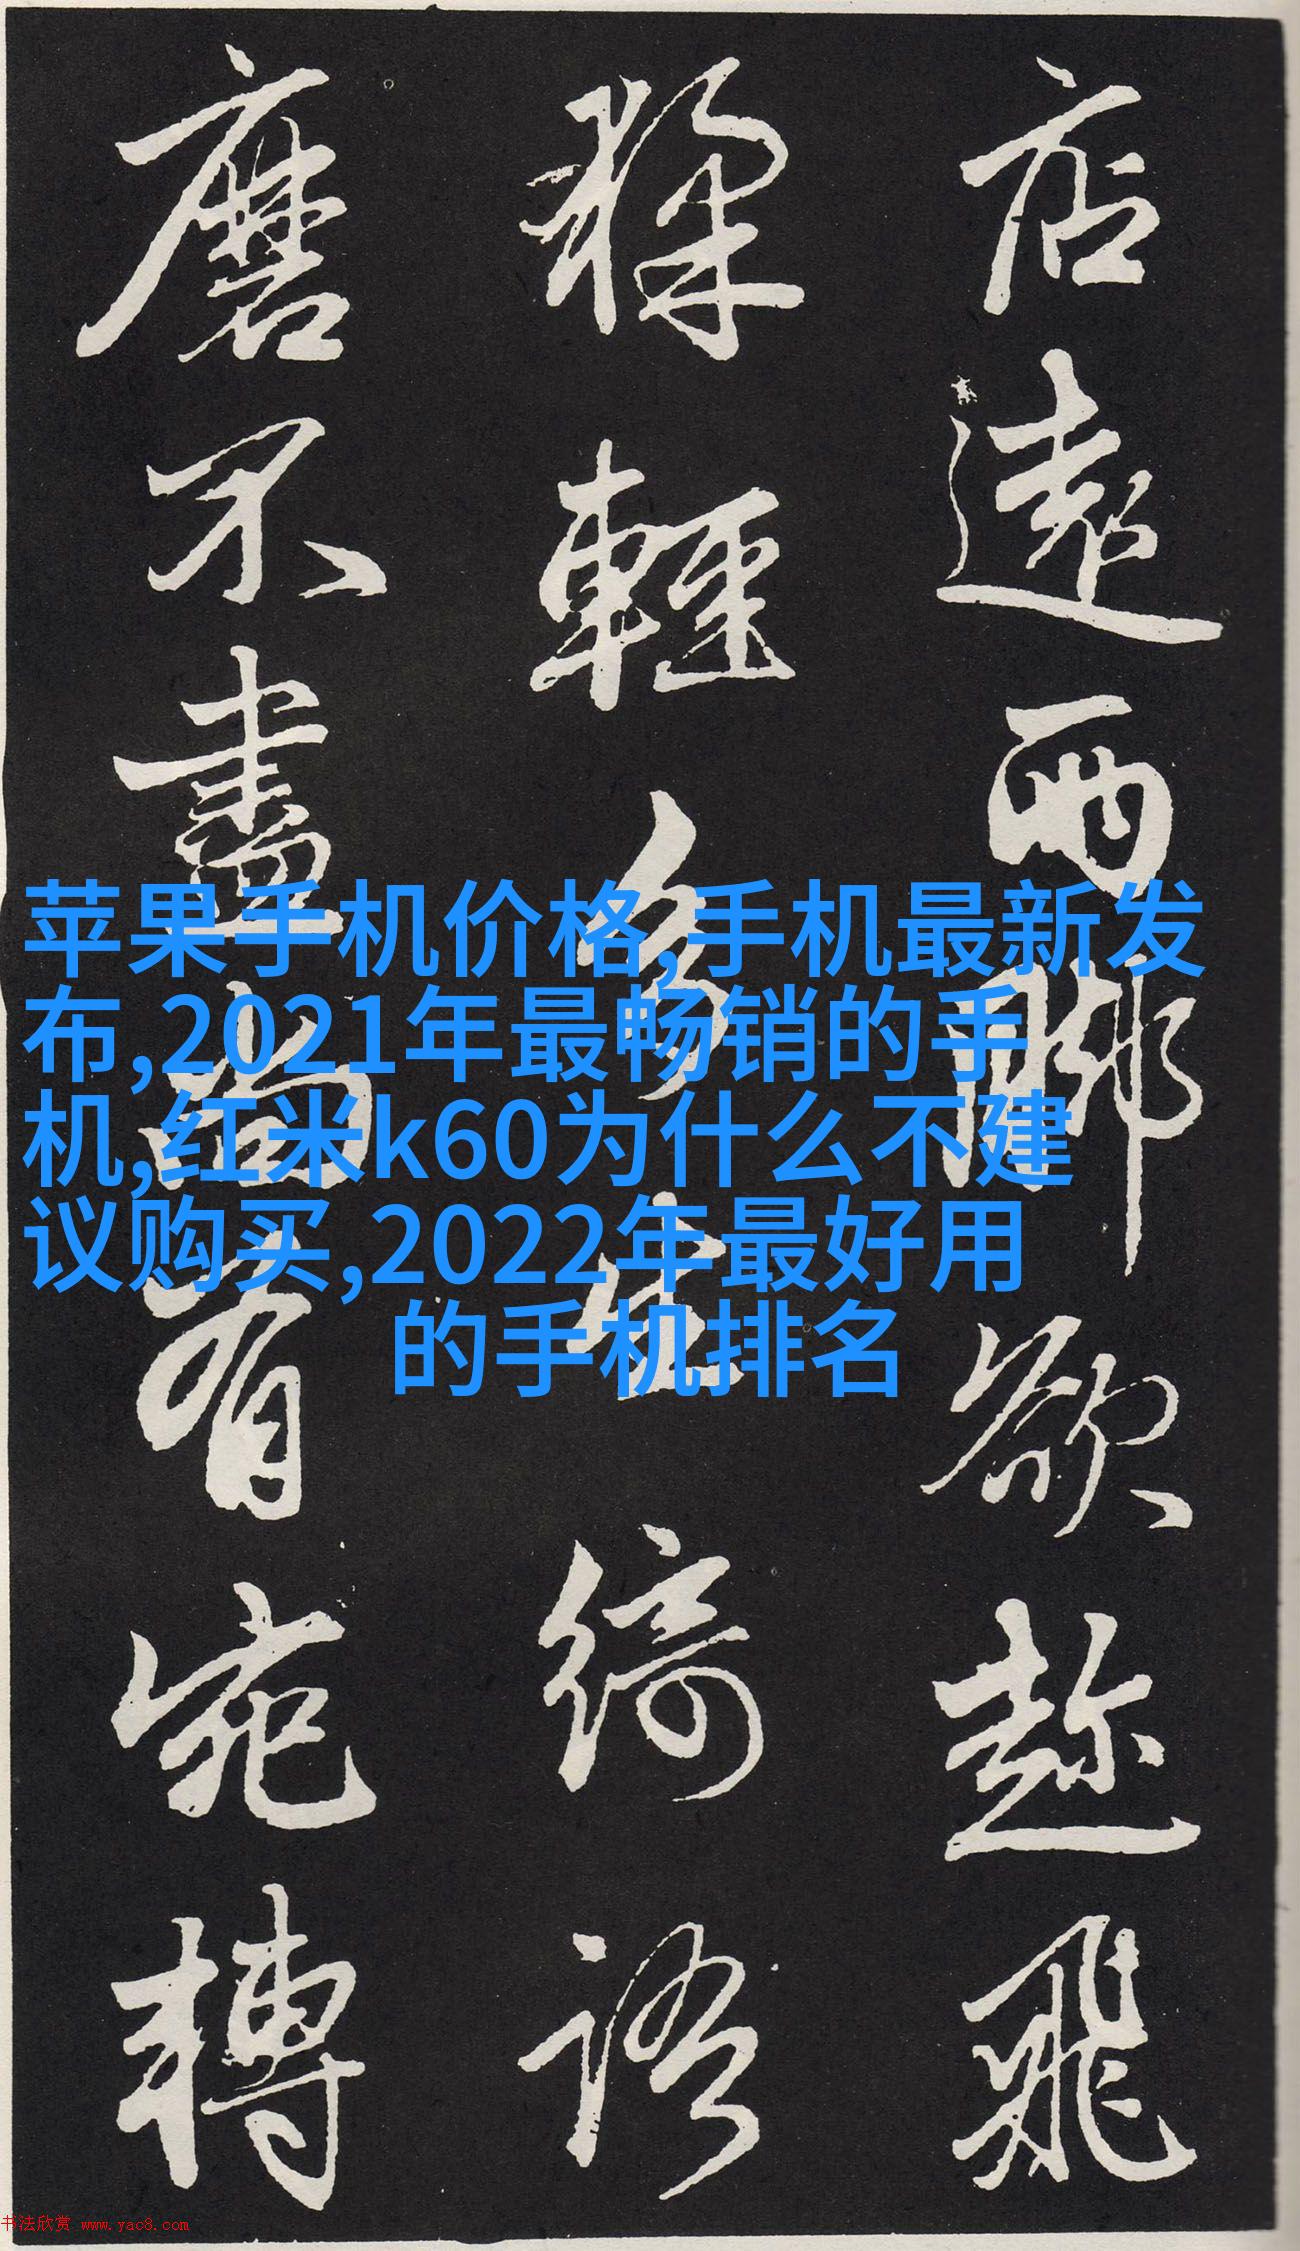 店遠两脚欲趂飛
猱輕多生綺語
磨不盡尚有宛轉
苹果手机价格,手机最新发
布,2021年最畅销的手
机,红米k60为什么不建
议购买,2022年最好用
的手机排名
书法欣赏 www.yac8.com